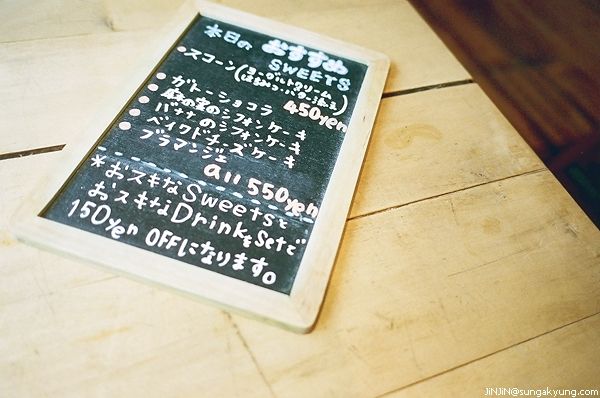 本日の おすすめ
SWEETS
・スコーン(ヨーグルトクリーム
はちみつ・バター添え)
450yen
ガトーショコラ
木の実のシフォンケーキ
バナナのシフォンケーキ
ベイクドチーズケーキ
ブラマンジェ
all 550yen
*おスキなSweetsと
おスキなDrinkをSetで
150yen OFFになります。
JiNJiN@sungakyung.com